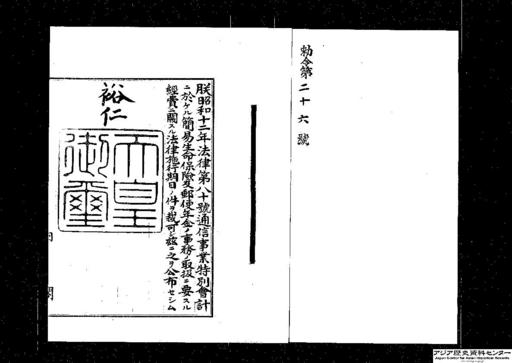 勅令第二十六號
朕昭和十二年法律第八十號通信事業特別會計
ニ於ケル簡易生命保險及郵便年金ノ事務ノ取扱ニ要スル
經費ニ關スル法律施行期日ノ件ヲ裁可シ茲ニ之ヲ公布セシム
裕仁
天皇
御璽
内
閣
アジア歴史資料センター
Japan Center for Asian Historical Records